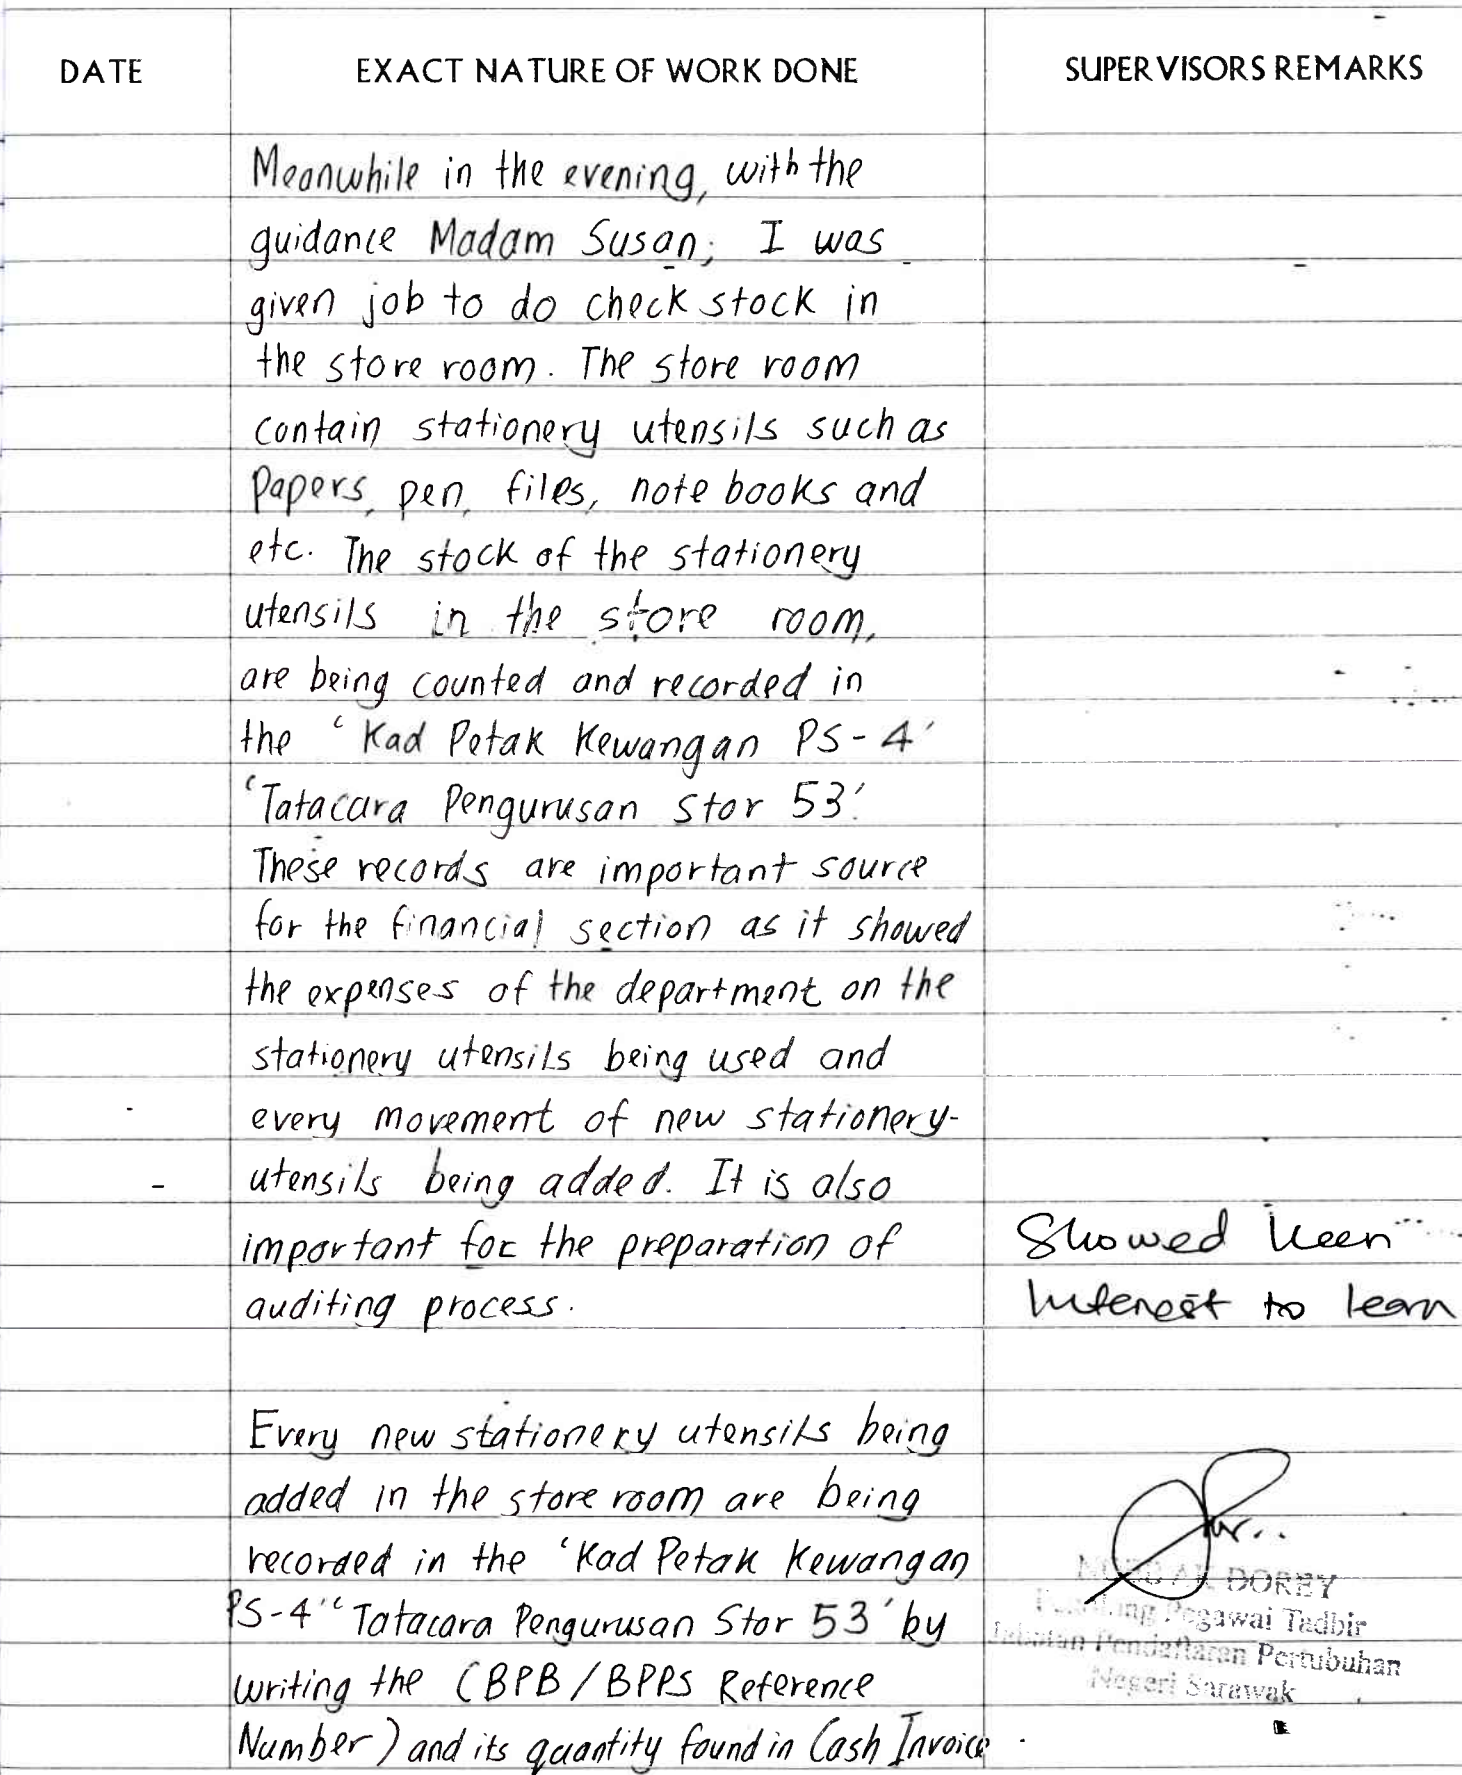 DATE EXACT NATURE OF WORK DONE SUPERVISORS REMARKS
Meanwhile in the evening, with the
guidance Madam Susan, I was
given job to do check stock in
the store room. The store room
contain stationery utensils such as
Papers, pen, files, note books and
etc. The stock of the stationery
utensils in the store room,
are being counted and recorded in
the ‘Kad Petak Kewangan PS-4’
‘Tatacara Pengurusan Stor 53’.
These records are important source
for the financial section as it showed
the expenses of the department on the
stationery utensils being used and
every movement of new stationery-
utensils being added. It is also
important for the preparation of
auditing process.
Every new stationery utensils being
added in the store room are being
recorded in the ‘Kad Petak Kewangan
PS-4’ ‘Tatacara Pengurusan Stor 53’ by
writing the (BPB/BPPS Reference
Number) and its quantity found in Cash Invoice
Showed keen
interest to learn
DOREY
Pegawai Tadbir
Jabatan Pendaftaran Pertubuhan
Negeri Sarawak